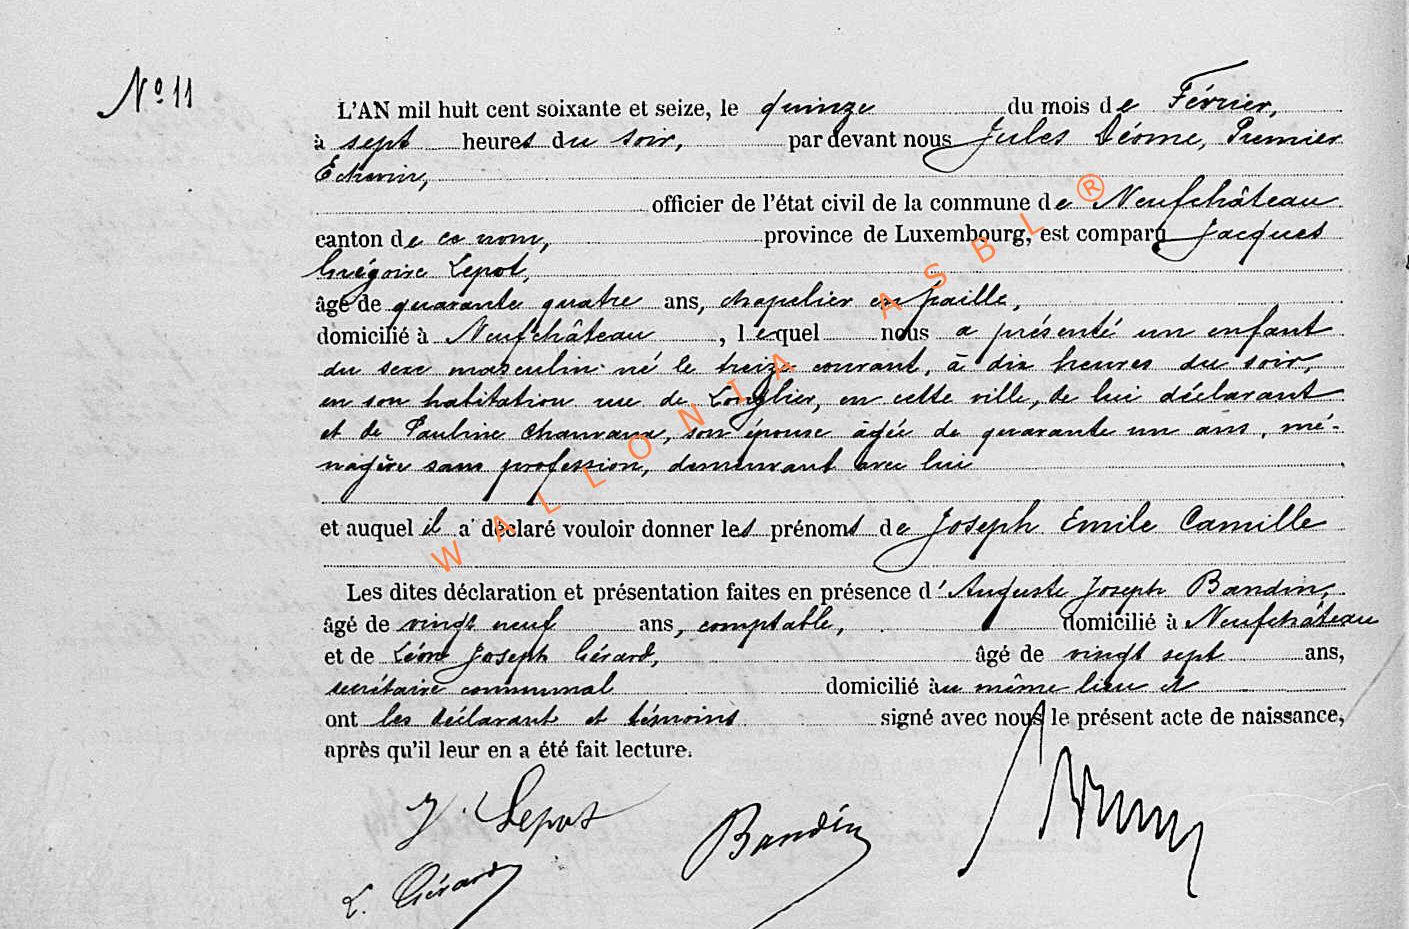 N° 11
L'AN mil huit cent soixante et seize, le quinze du mois de Février,
à sept heures du soir, par devant nous Jules Déome, Premier
Echevin,
officier de l'état civil de la commune de Neufchâteau
canton de ce nom, province de Luxembourg, est comparu Jacques
Grégoire Lepot,
âgé de quarante quatre ans, chapelier en paille,
domicilié à Neufchâteau, lequel nous a présenté un enfant
du sexe masculin né le treize courant, à dix heures du soir,
en son habitation rue de Longlier, en cette ville, de lui déclarant
et de Pauline son épouse âgée de quarante un ans, mé-
nagère sans profession, demeurant avec lui
et auquel il a déclaré vouloir donner les prénoms de Joseph Emile Camille
Les dites déclaration et présentation faites en présence d'Auguste Joseph Bandin,
âgé de vingt neuf ans, comptable, domicilié à Neufchâteau
et de Léon Joseph Gérard, âgé de vingt sept ans,
secrétaire communal domicilié au même lieu et
ont les déclarant et témoins signé avec nous le présent acte de naissance,
après qu'il leur en a été fait lecture.
J. Lepot
Bandin
L. Gérard
WALLONIA ASBL ®